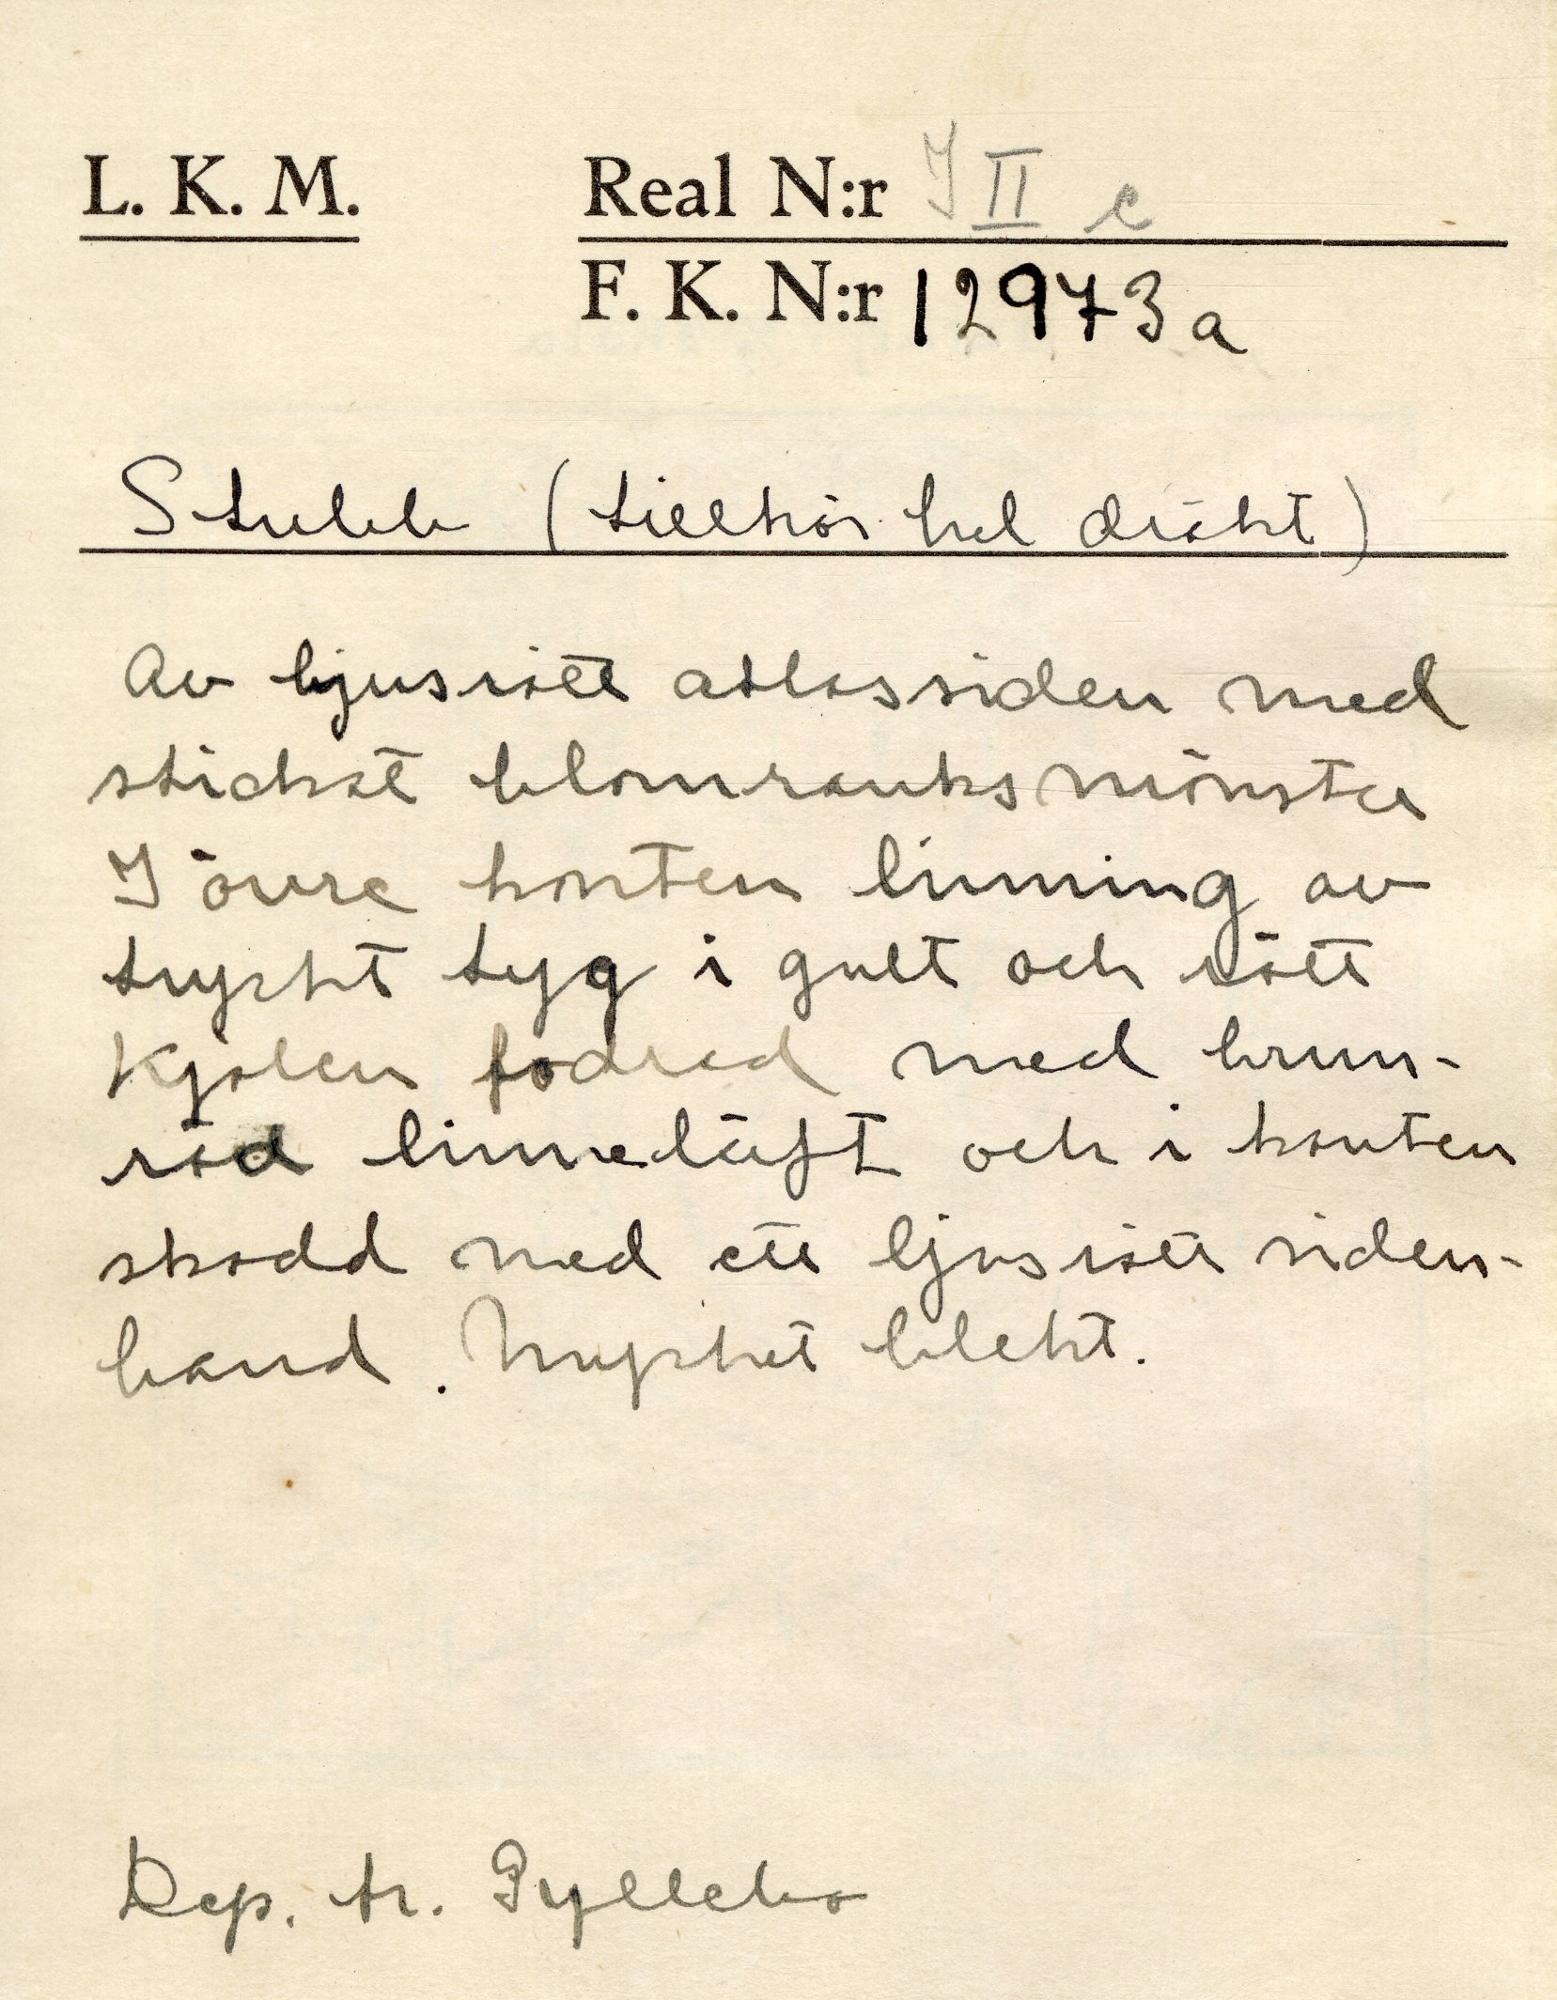 L. K. M.
Real N:r I II c
F. K. N:r 12973a
Stubb (tillhör hel dräkt)
Av ljusrött atlassiden med
stickat blomranksmönster
I övre kanten linning av
tryckt tyg i gult och rött
Kjolen fodrad med brun-
röd linnelärft och i kanten
skodd med ett ljusrött siden-
band. Mycket blekt.
Dep. fr. Gyllebo